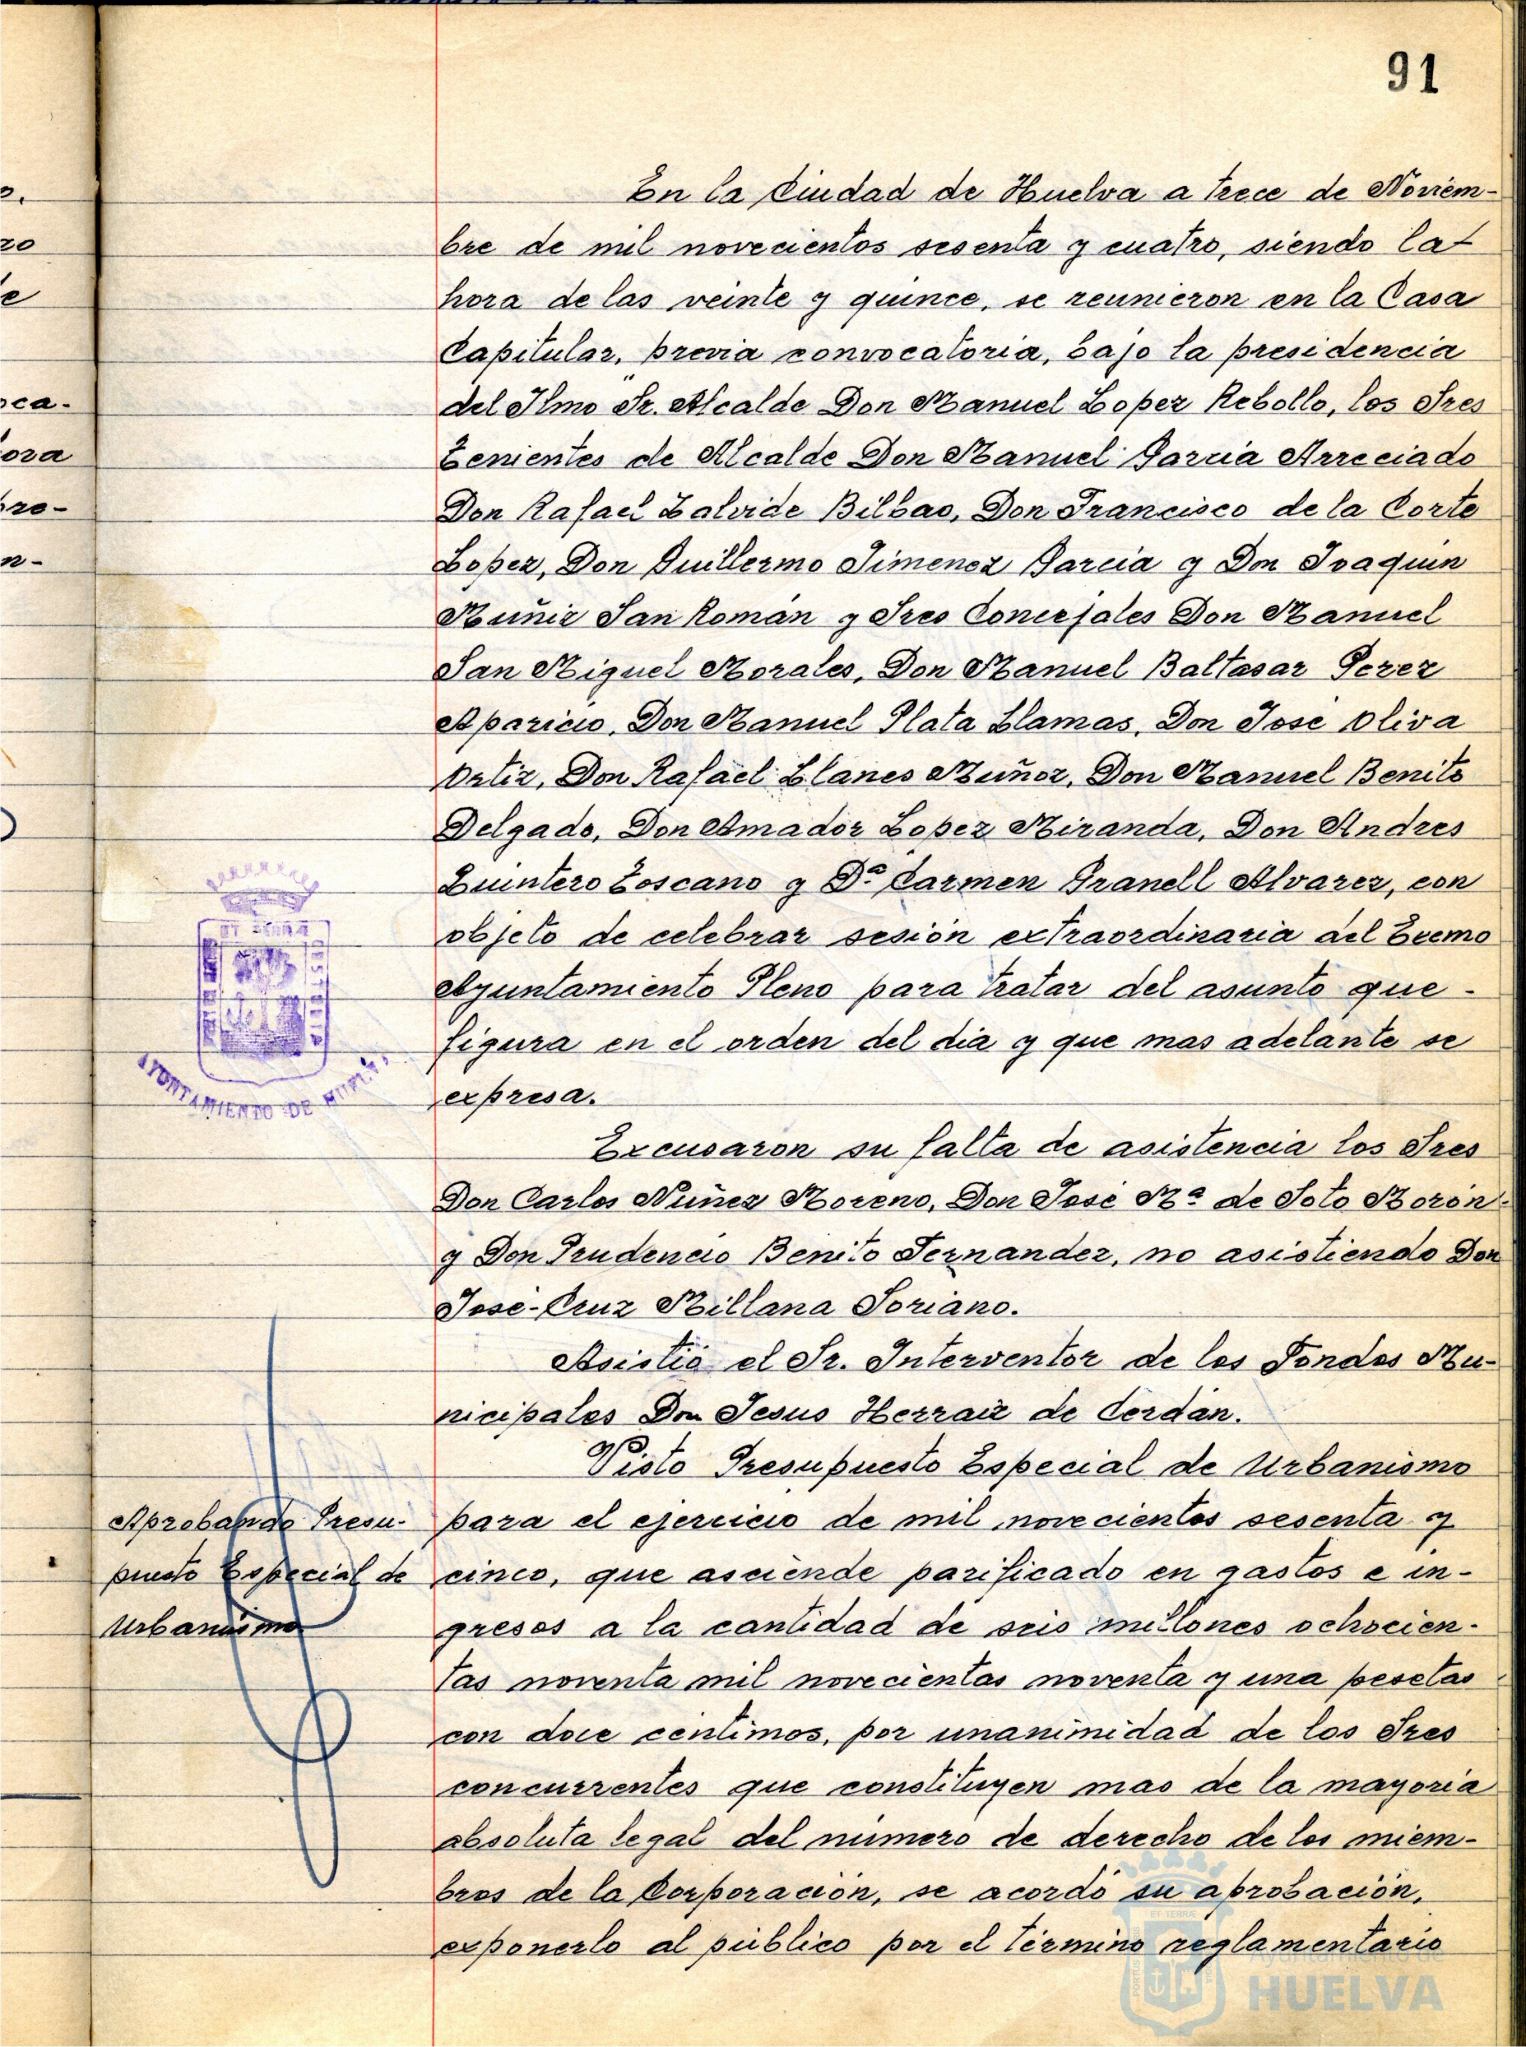 91
En la Ciudad de Huelva a trece de Noviem-
bre de mil novecientos sesenta y cuatro, siendo la
hora de las veinte y quince, se reunieron en la Casa
Capitular, previa convocatoria, bajo la presidencia
del Ilmo Sr. Alcalde Don Manuel Lopez Rebollo, los Sres
Tenientes de Alcalde Don Manuel Garcia Arreciado
Don Rafael Zalvide Bilbao, Don Francisco de la Corte
Lopez, Don Guillermo Jimenez Garcia y Don Joaquin
Muñiz San Román y Sres Concejales Don Manuel
San Miguel Morales, Don Manuel Baltasar Perez
Aparicio, Don Manuel Plata Llamas, Don José Oliva
Ortiz, Don Rafael Llanes Muñoz, Don Manuel Benito
Delgado, Don Amador Lopez Miranda, Don Andres
Quintero Toscano y Dª Carmen Granell Alvarez, con
objeto de celebrar sesión extraordinaria del Excmo
Ayuntamiento Pleno para tratar del asunto que -
figura en el orden del dia y que mas adelante se
expresa.
Excusaron su falta de asistencia los Sres
Don Carlos Nuñez Moreno, Don José Mª de Soto Morón
y Don Prudencio Benito Fernandez, no asistiendo Don
José-Cruz Millana Soriano.
Asistió el Sr. Interventor de los Fondos Mu-
nicipales Don Jesus Herraiz de Cerdán.
Visto Presupuesto Especial de Urbanismo
para el ejercicio de mil novecientos sesenta y
cinco, que asciende parificado en gastos e in-
gresos a la cantidad de seis millones ochocien-
tas noventa mil novecientas noventa y una pesetas
con doce centimos, por unanimidad de los Sres
concurrentes que constituyen mas de la mayoria
absoluta legal del número de derecho de los miem-
bros de la Corporación, se acordó su aprobación,
exponerlo al público por el término reglamentario
Aprobando Presu-
puesto Especial de
Urbanismo
ET TERRÆ
AYUNTAMIENTO DE HUELVA
oca.
ora
pre-
n-
Ayuntamiento de
HUELVA